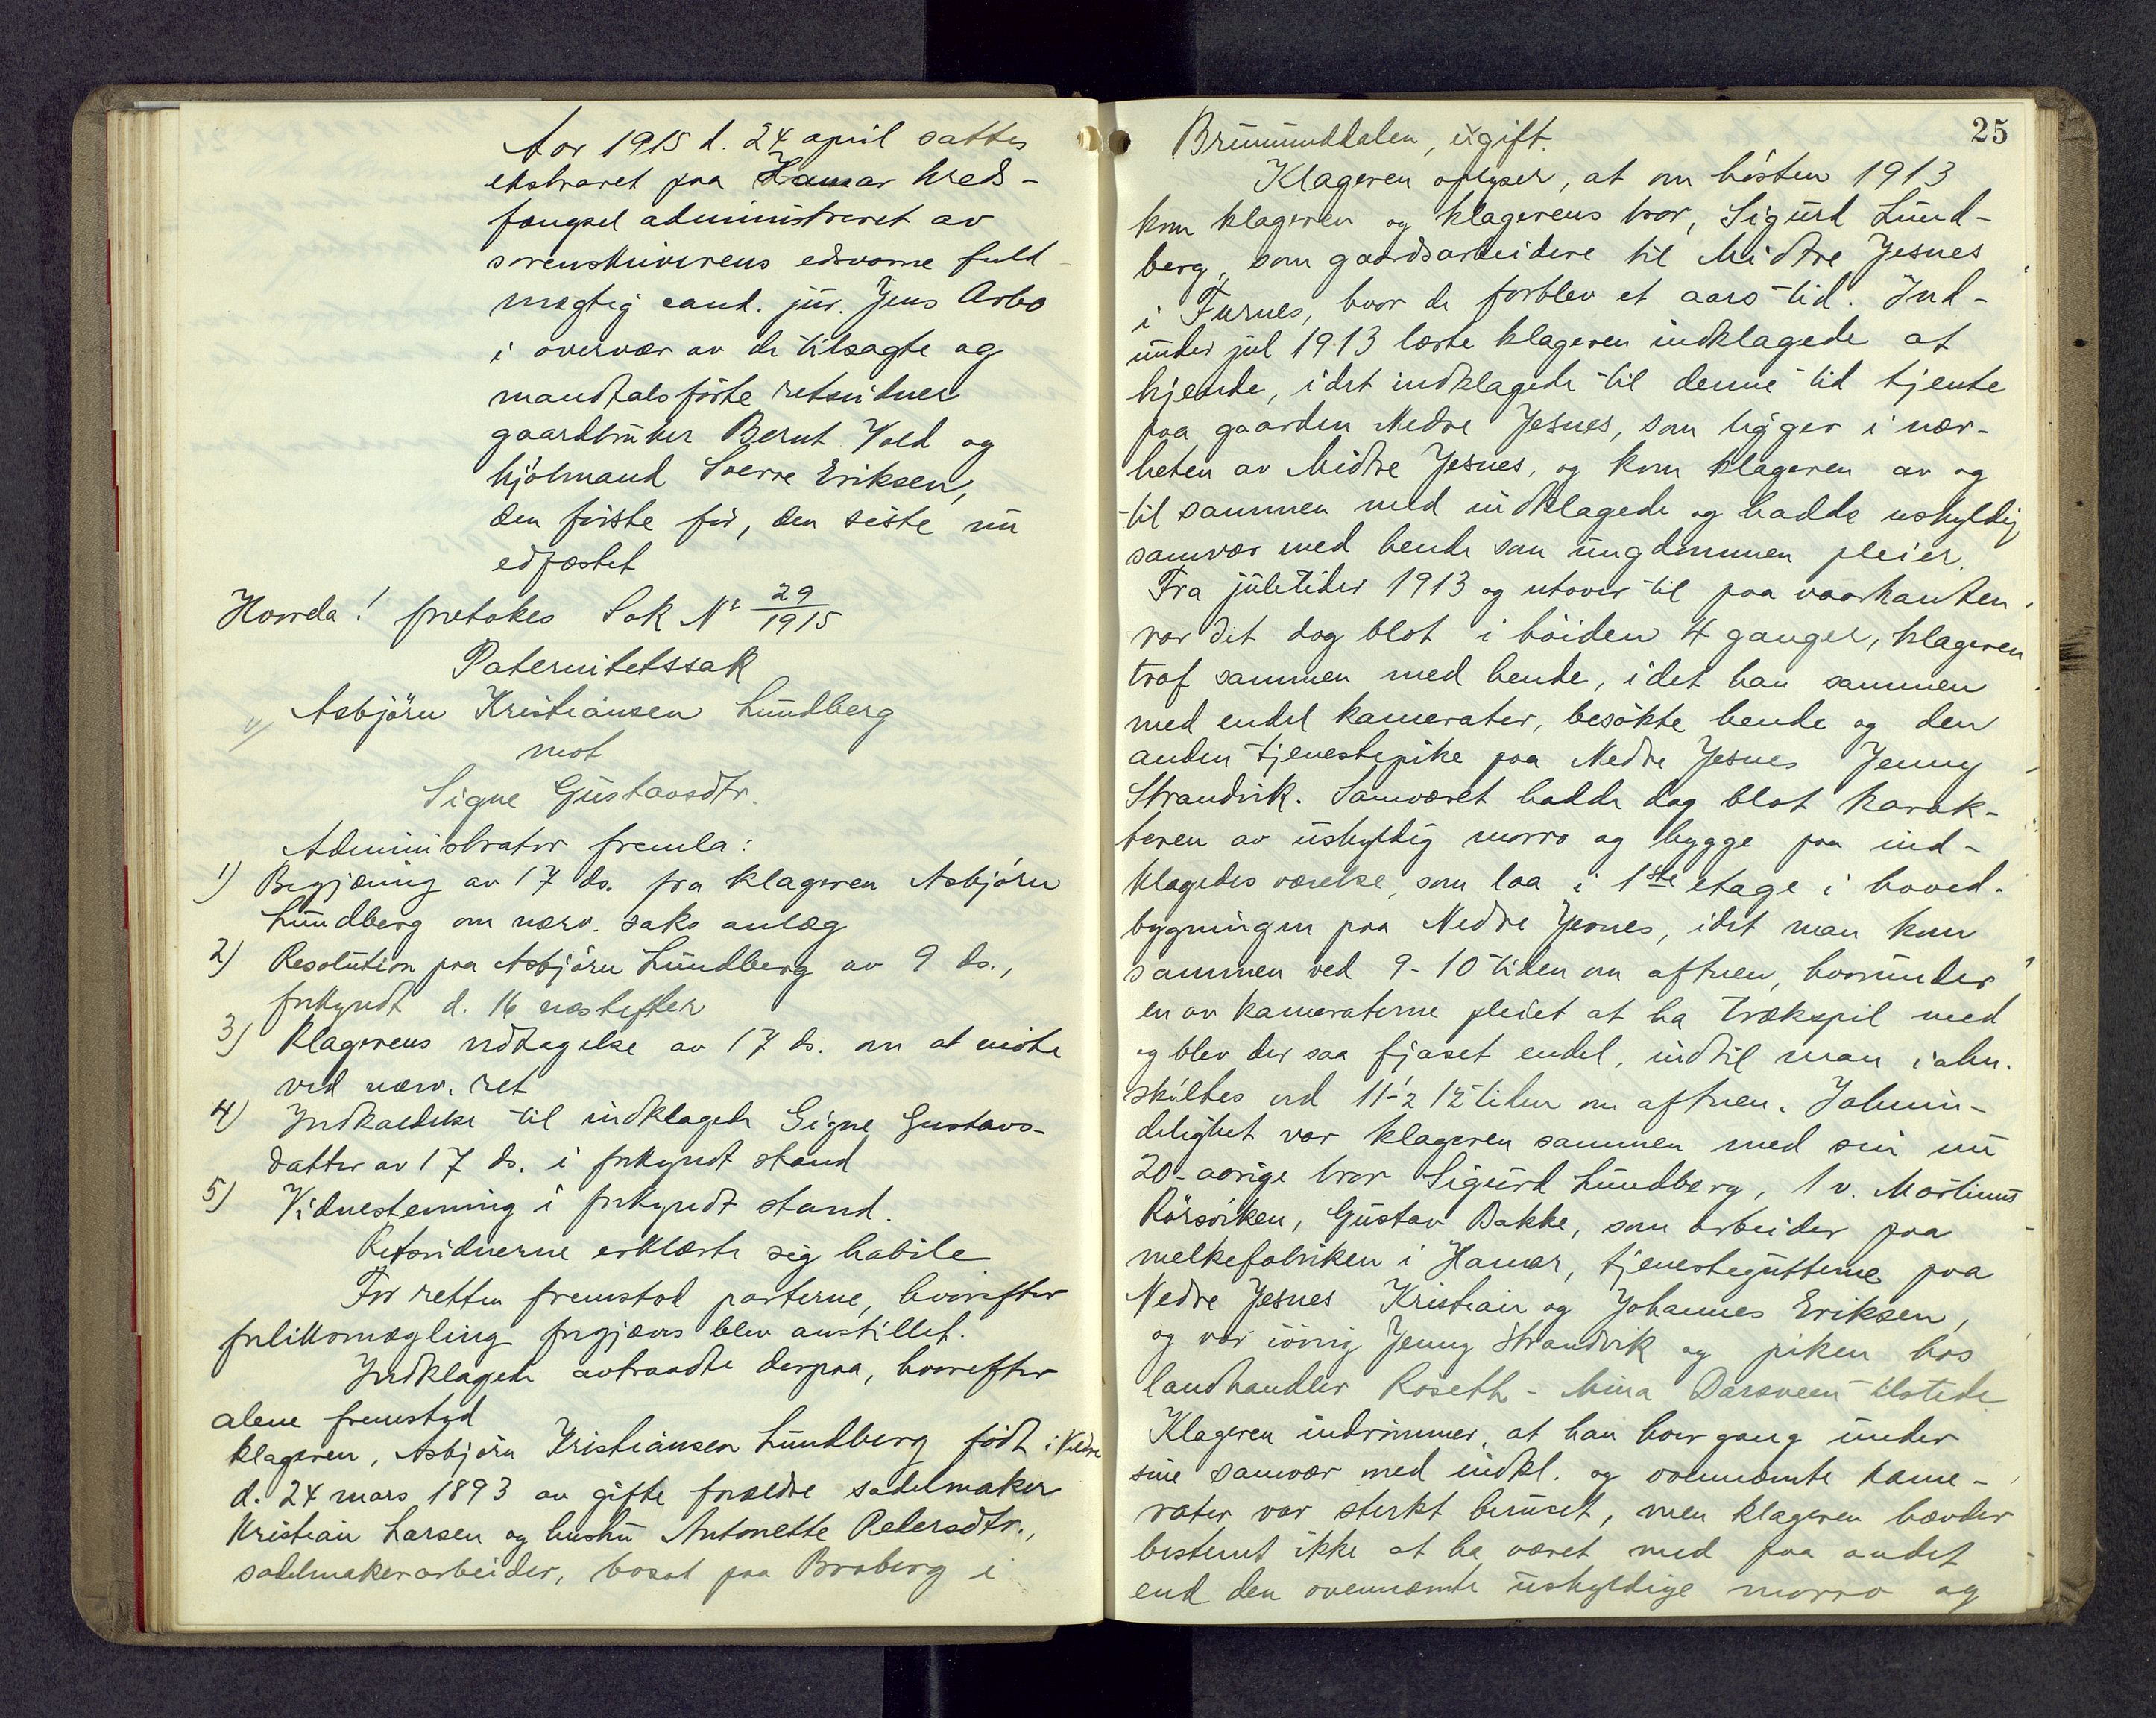 Aar 1915 d. 24 april sattes
ekstraret paa Hamar kreds-
fængsel administreret av
sorenskriverens edsvorne fuld-
mægtig cand. jur. Jens Arbo
i overvær av de tilsagte og
mandtalsførte retsvidner
gaardbruker Bernt Vold og
hjólmand Sverre Eriksen,
den første før, den siste nu
edfæstet
Hvorda! foretokes Sak Nr 29/1915
Paternitetssak
Asbjörn Kristiansen Lundberg
mot
Signe Gustavsdtr.
Administrator fremla:
1) Begjæring av 17 ds. fra klageren Asbjörn
Lundberg om nærv. saks anlæg
2) Resolution paa Asbjörn Lundberg av 9 ds.,
forkyndt d. 16 næstefter
3) Klagerens vedtagelse av 17 ds. om at møte
ved nærv. ret
4) Indkaldelse til indklagede Signe Gustavs-
datter av 17 ds. i forkyndt stand
5) Vidnestevning i forkyndt stand.
Retsvidnerne erklærte sig habile
For retten fremstod parterne, hvorefter
forliksmægling forgjæves blev anstillet.
Indklagede avtraadte derpaa, hvorefter
alene fremstod
klageren, Asbjörn Kristiansen Lundberg født i Veldre
d. 24 mars 1893 av gifte forældre sadelmaker
Kristian Larsen og hustru Antonette Pedersdtr.,
sadelmakerarbeider, bosat paa Broberg i
25
Brumunddalen, ugift.
Klageren oplyser, at om høsten 1913
kom klageren og klagerens bror, Sigurd Lund-
berg, som gaardsarbeidere til Midtre Jesnes
i Furnes, hvor de forblev et aars tid. Ind-
under jul 1913 lærte klageren indklagede at
kjende, idet indklagede til denne tid tjente
paa gaarden Nedre Jesnes, som ligger i nær-
heten av Midtre Jesnes, og kom klageren av og
til sammen med indklagede og hadde uskyldig
samvær med hende som ungdommen pleier.
Fra juletider 1913 og utover til paa vaarkanten
var det dog blot i høiden 4 ganger, klageren
traf sammen med hende, idet han sammen
med endel kamerater, besökte hende og den
anden tjenestepike paa Nedre Jesnes Jenny
Strandvik. Samværet hadde dog blot karak-
teren av uskyldig morro og hygge paa ind-
klagedes værelse, som laa i 1ste etage i hoved-
bygningen paa Nedre Jesnes, idet man kom
sammen ved 9-10 tiden om aftnen, hvorunder
en av kameraterne pleiet at ha trækspil med
og blev der saa fjaset endel, indtil man i alm.
skiltes ved 11-½12 tiden om aftnen. I almin-
delighet var klageren sammen med sin nu
20-aarige bror Sigurd Lundberg, 1 v. Martinus
Rörsviken, Gustav Bakke, som arbeider paa
melkefabriken i Hamar, tjenestegutterne paa
Nedre Jesnes Kristian og Johannes Eriksen,
og var iövrig Jenny Strandvik og piken hos
landhandler Roseth - Mina Darsveen tilstede
Klageren indrömmer, at han hver gang under
sine samvær med indkl. og ovennævnte kame-
rater var sterkt beruset, men klageren hævder
bestemt ikke at ha været med paa andet
end den ovennævnte uskyldige morro og